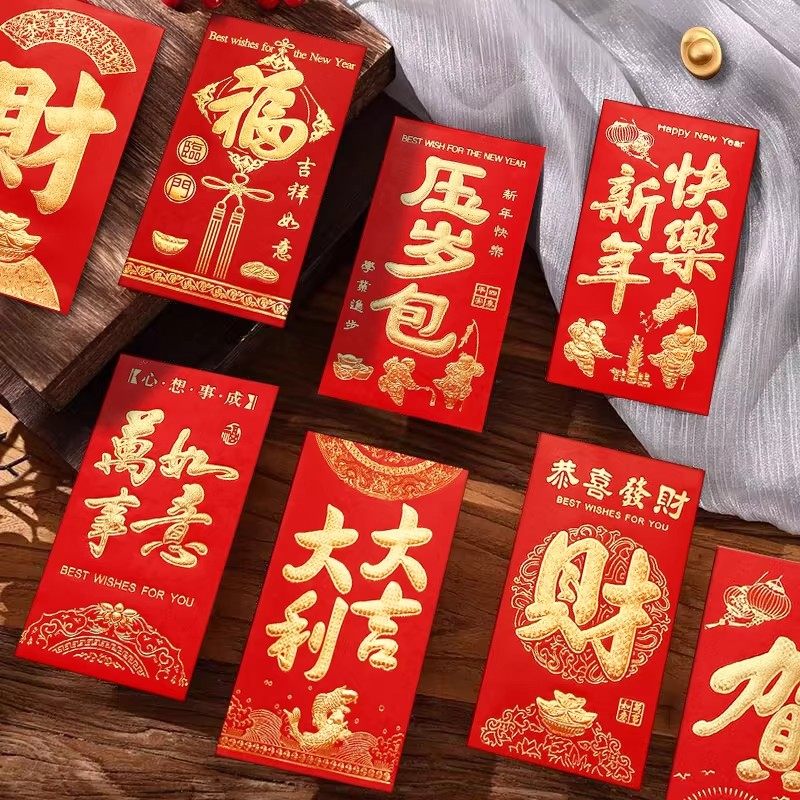 恭喜發財
財
Best wishes for the New Year
福
臨
門
吉祥如意
BEST WISH FOR THE NEW YEAR
压岁包
新年快樂
學業進步
Happy New Year
新年
快樂
【心·想·事·成】
萬事
如意
BEST WISHES FOR YOU
大吉
大利
恭喜發財
BEST WISHES FOR YOU
財
賀